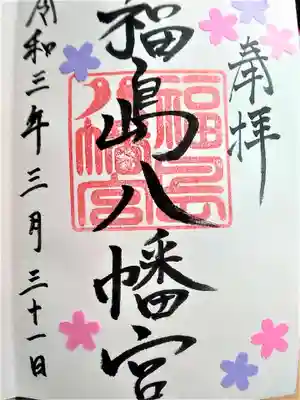 奉拝
福島八幡宮
令和三年三月三十一日
福島八幡宮